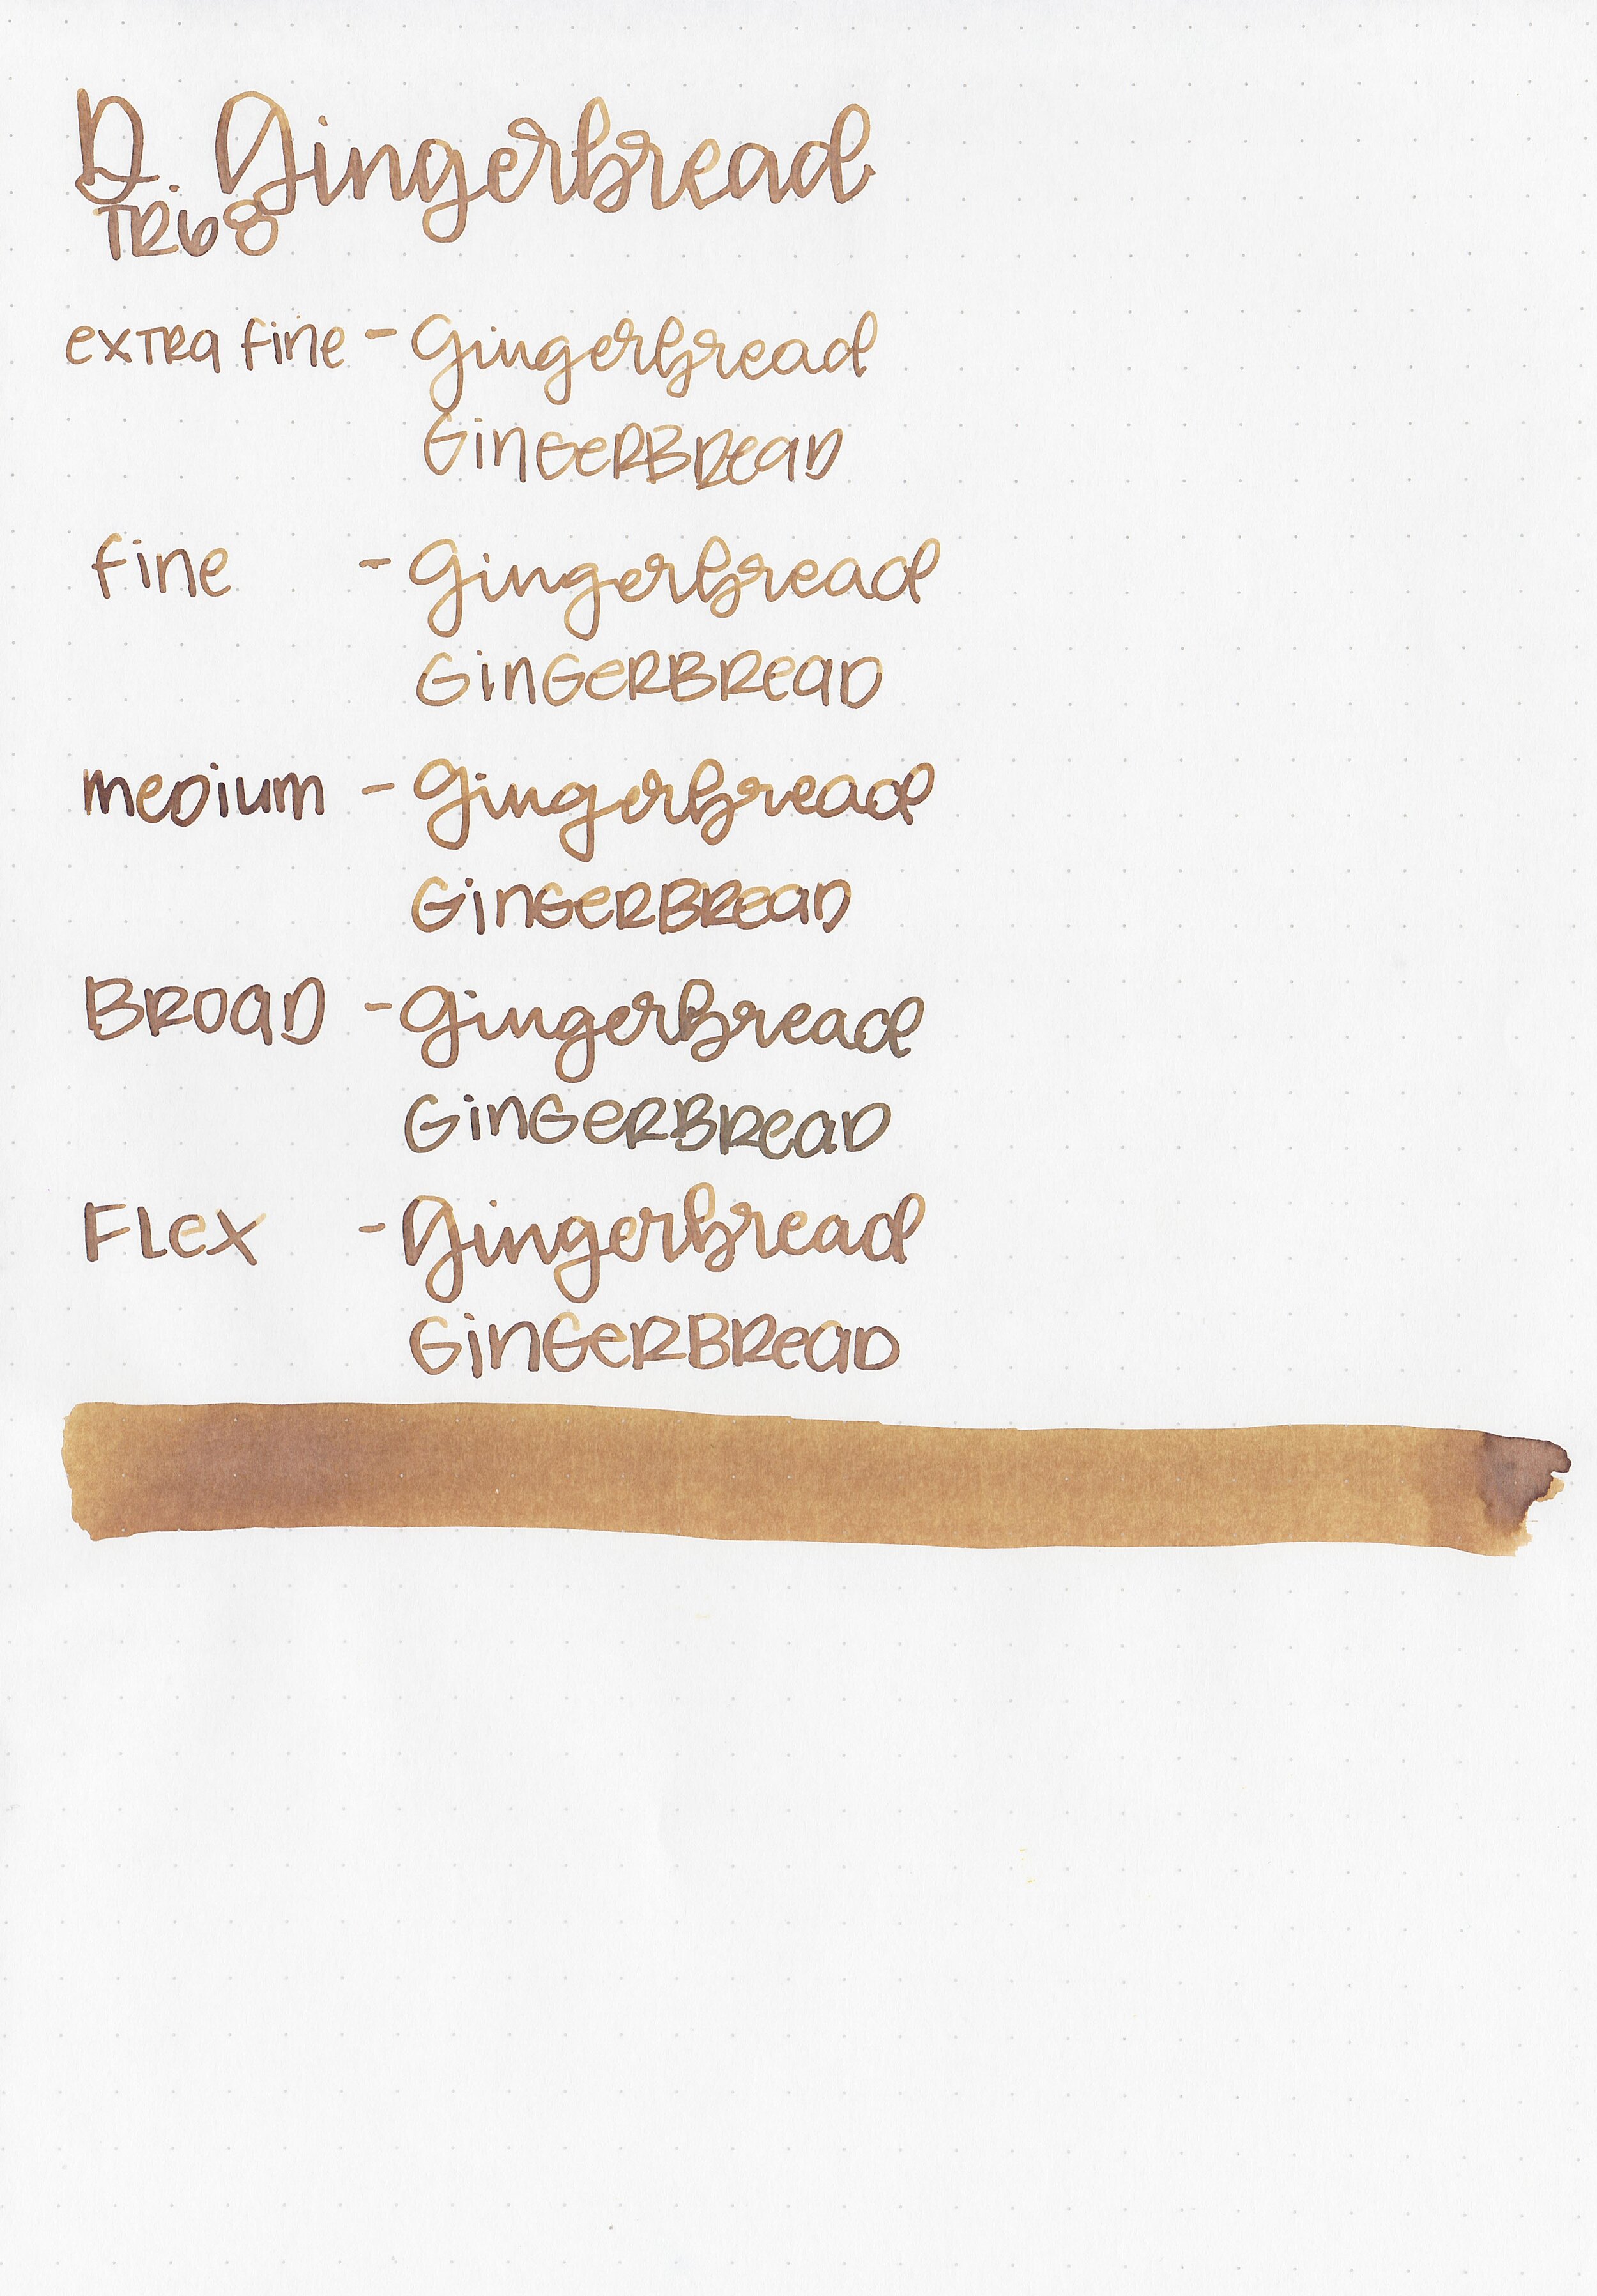 D. Gingerbread
TR68
extra fine - Gingerbread
GinGeRBReaD
fine - Gingerbread
GinGeRBReaD
meDium - Gingerbread
GinGeRBReaD
BROaD - Gingerbread
GinGeRBReaD
FLex - Gingerbread
GinGeRBReaD